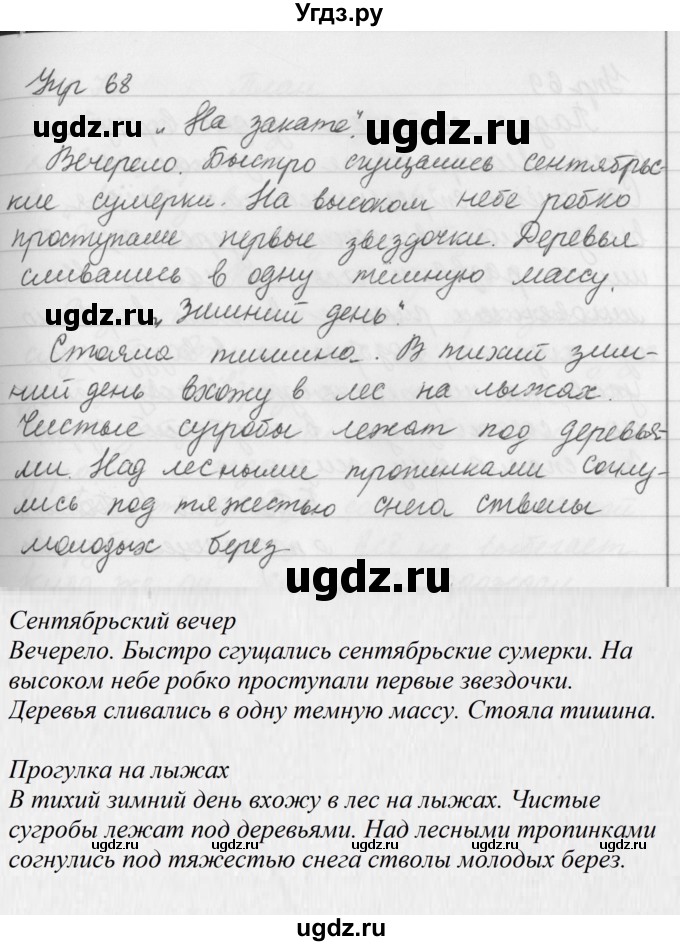 Угдз.ру
Упр 68
ugdz.ru „На закате". ugdz.ru
Вечерело. Быстро сгущались сентябрьс-
кие сумерки. На высоком небе робко
проступали первые звездочки. Деревья
сливались в одну темную массу.
ugdz.ru „Зимний день".
Стояла тишина. В тихий зим-
ний день вхожу в лес на лыжах.
Чистые сугробы лежат под деревья-
ми. Над лесными тропинками согну-
лись под тяжестью снега стволы
молодых берез
ugdz.ru
Сентябрьский вечер
Вечерело. Быстро сгущались сентябрьские сумерки. На
высоком небе робко проступали первые звездочки.
Деревья сливались в одну темную массу. Стояла тишина.
Прогулка на лыжах
В тихий зимний день вхожу в лес на лыжах. Чистые
сугробы лежат под деревьями. Над лесными тропинками
согнулись под тяжестью снега стволы молодых берез.
ugdz.ru